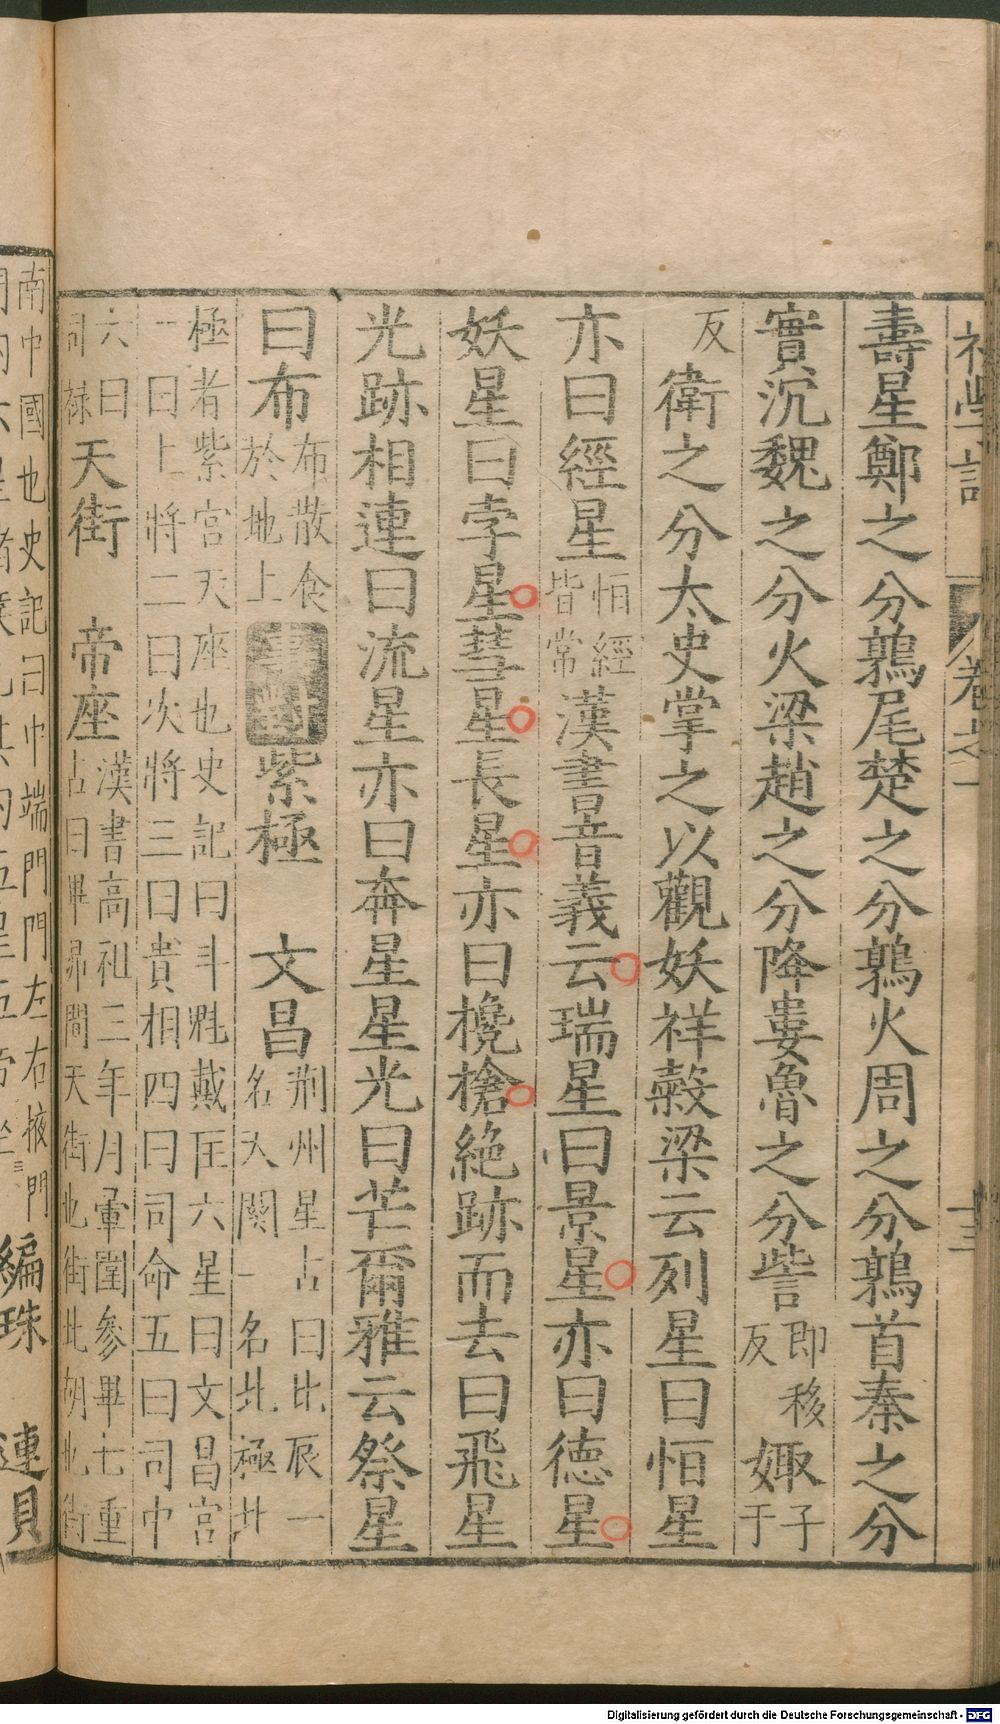 初學記 卷之一 十三
壽星鄭之分鶉尾楚之分鶉火周之分鶉首秦之分
實沉魏之分火梁趙之分降婁魯之分訾即移反娵子于
反衛之分太史掌之以觀妖祥榖梁云列星曰恒星
亦曰經星恒經皆常漢書音義云瑞星曰景星亦曰德星
妖星曰孛星彗星長星亦曰欃槍絶跡而去曰飛星
光跡相連曰流星亦曰奔星星光曰芒爾雅云祭星
曰布布散食於地上事對紫極 文昌荆州星占曰北辰一名天關一名北極北
極者紫宮天座也史記曰斗魁戴匡六星曰文昌宮一曰上將二曰次將三曰貴相四曰司命五曰司中
六曰司禄天街 帝座漢書高祖三年月暈圍參畢七重占曰畢昴間天街也街北胡也街
南中國也史記曰中端門門左右掖門 編珠 連貝
Digitalisierung gefördert durch die Deutsche Forschungsgemeinschaft - DFG